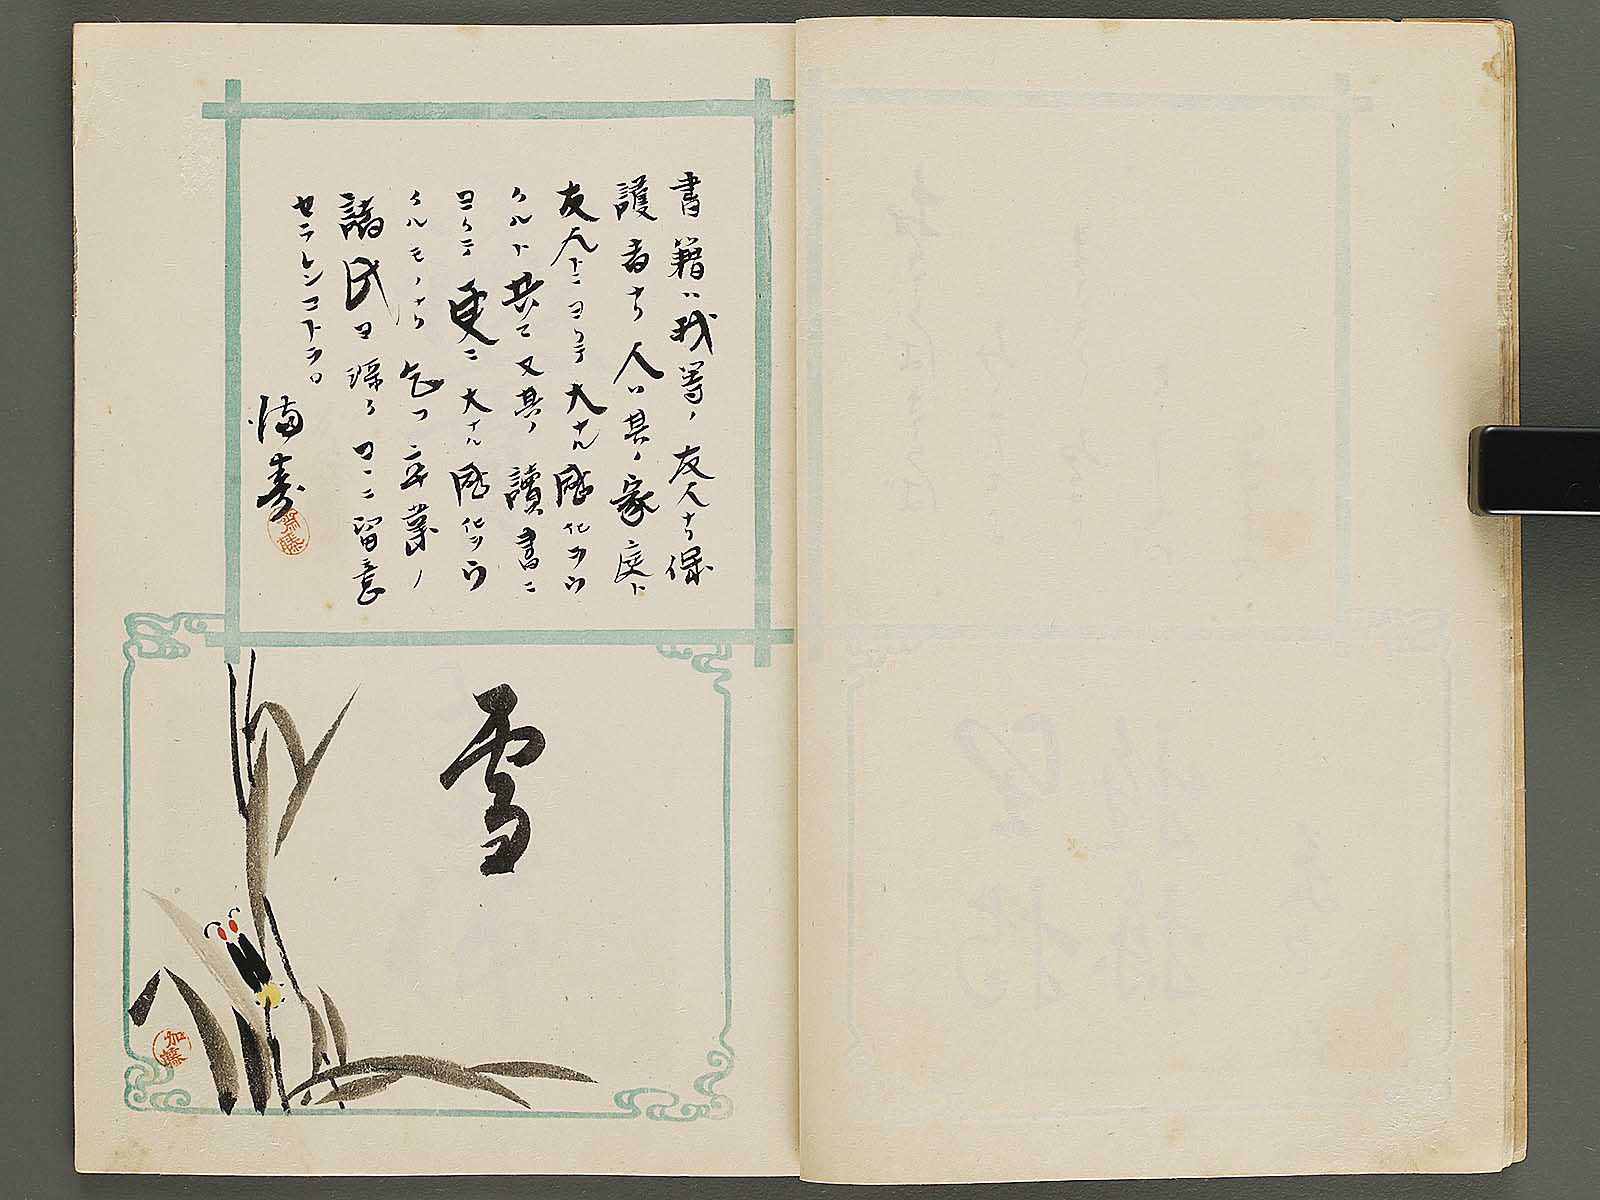 書籍ハ我等ノ友人ナリ保
護者ナリ人ハ其ノ家庭ト
友人トニヨリテ大ナル感化ヲウ
クルト共ニ又其ノ讀書ニ
ヨリテ更ニ大ナル感化ヲウ
クルモノナリ乞フ卒業ノ
諸氏ヨ深クココニ留意
セラレンコトヲ
壽
齋藤
雪
加藤